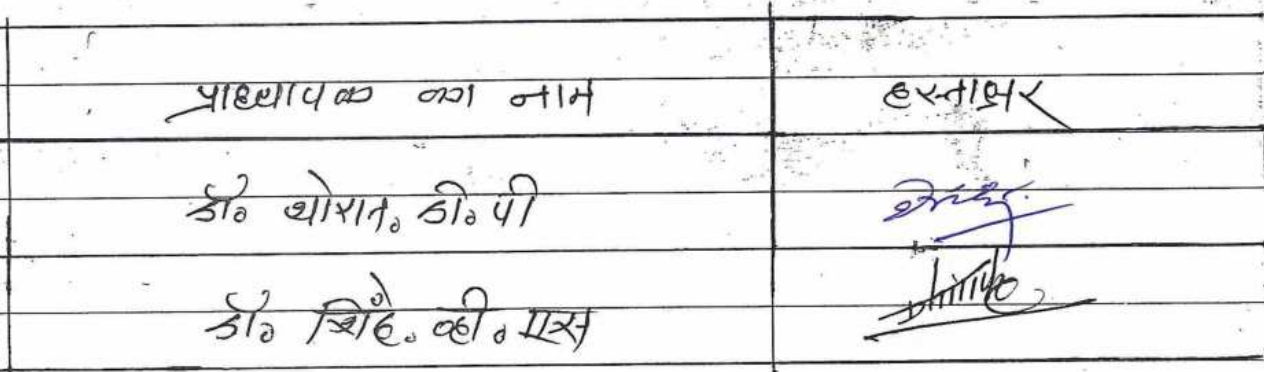 प्राध्यापक का नाम हस्ताक्षर
डॉ. थोरात. डी. पी
डॉ. शिंदे. व्ही. एस